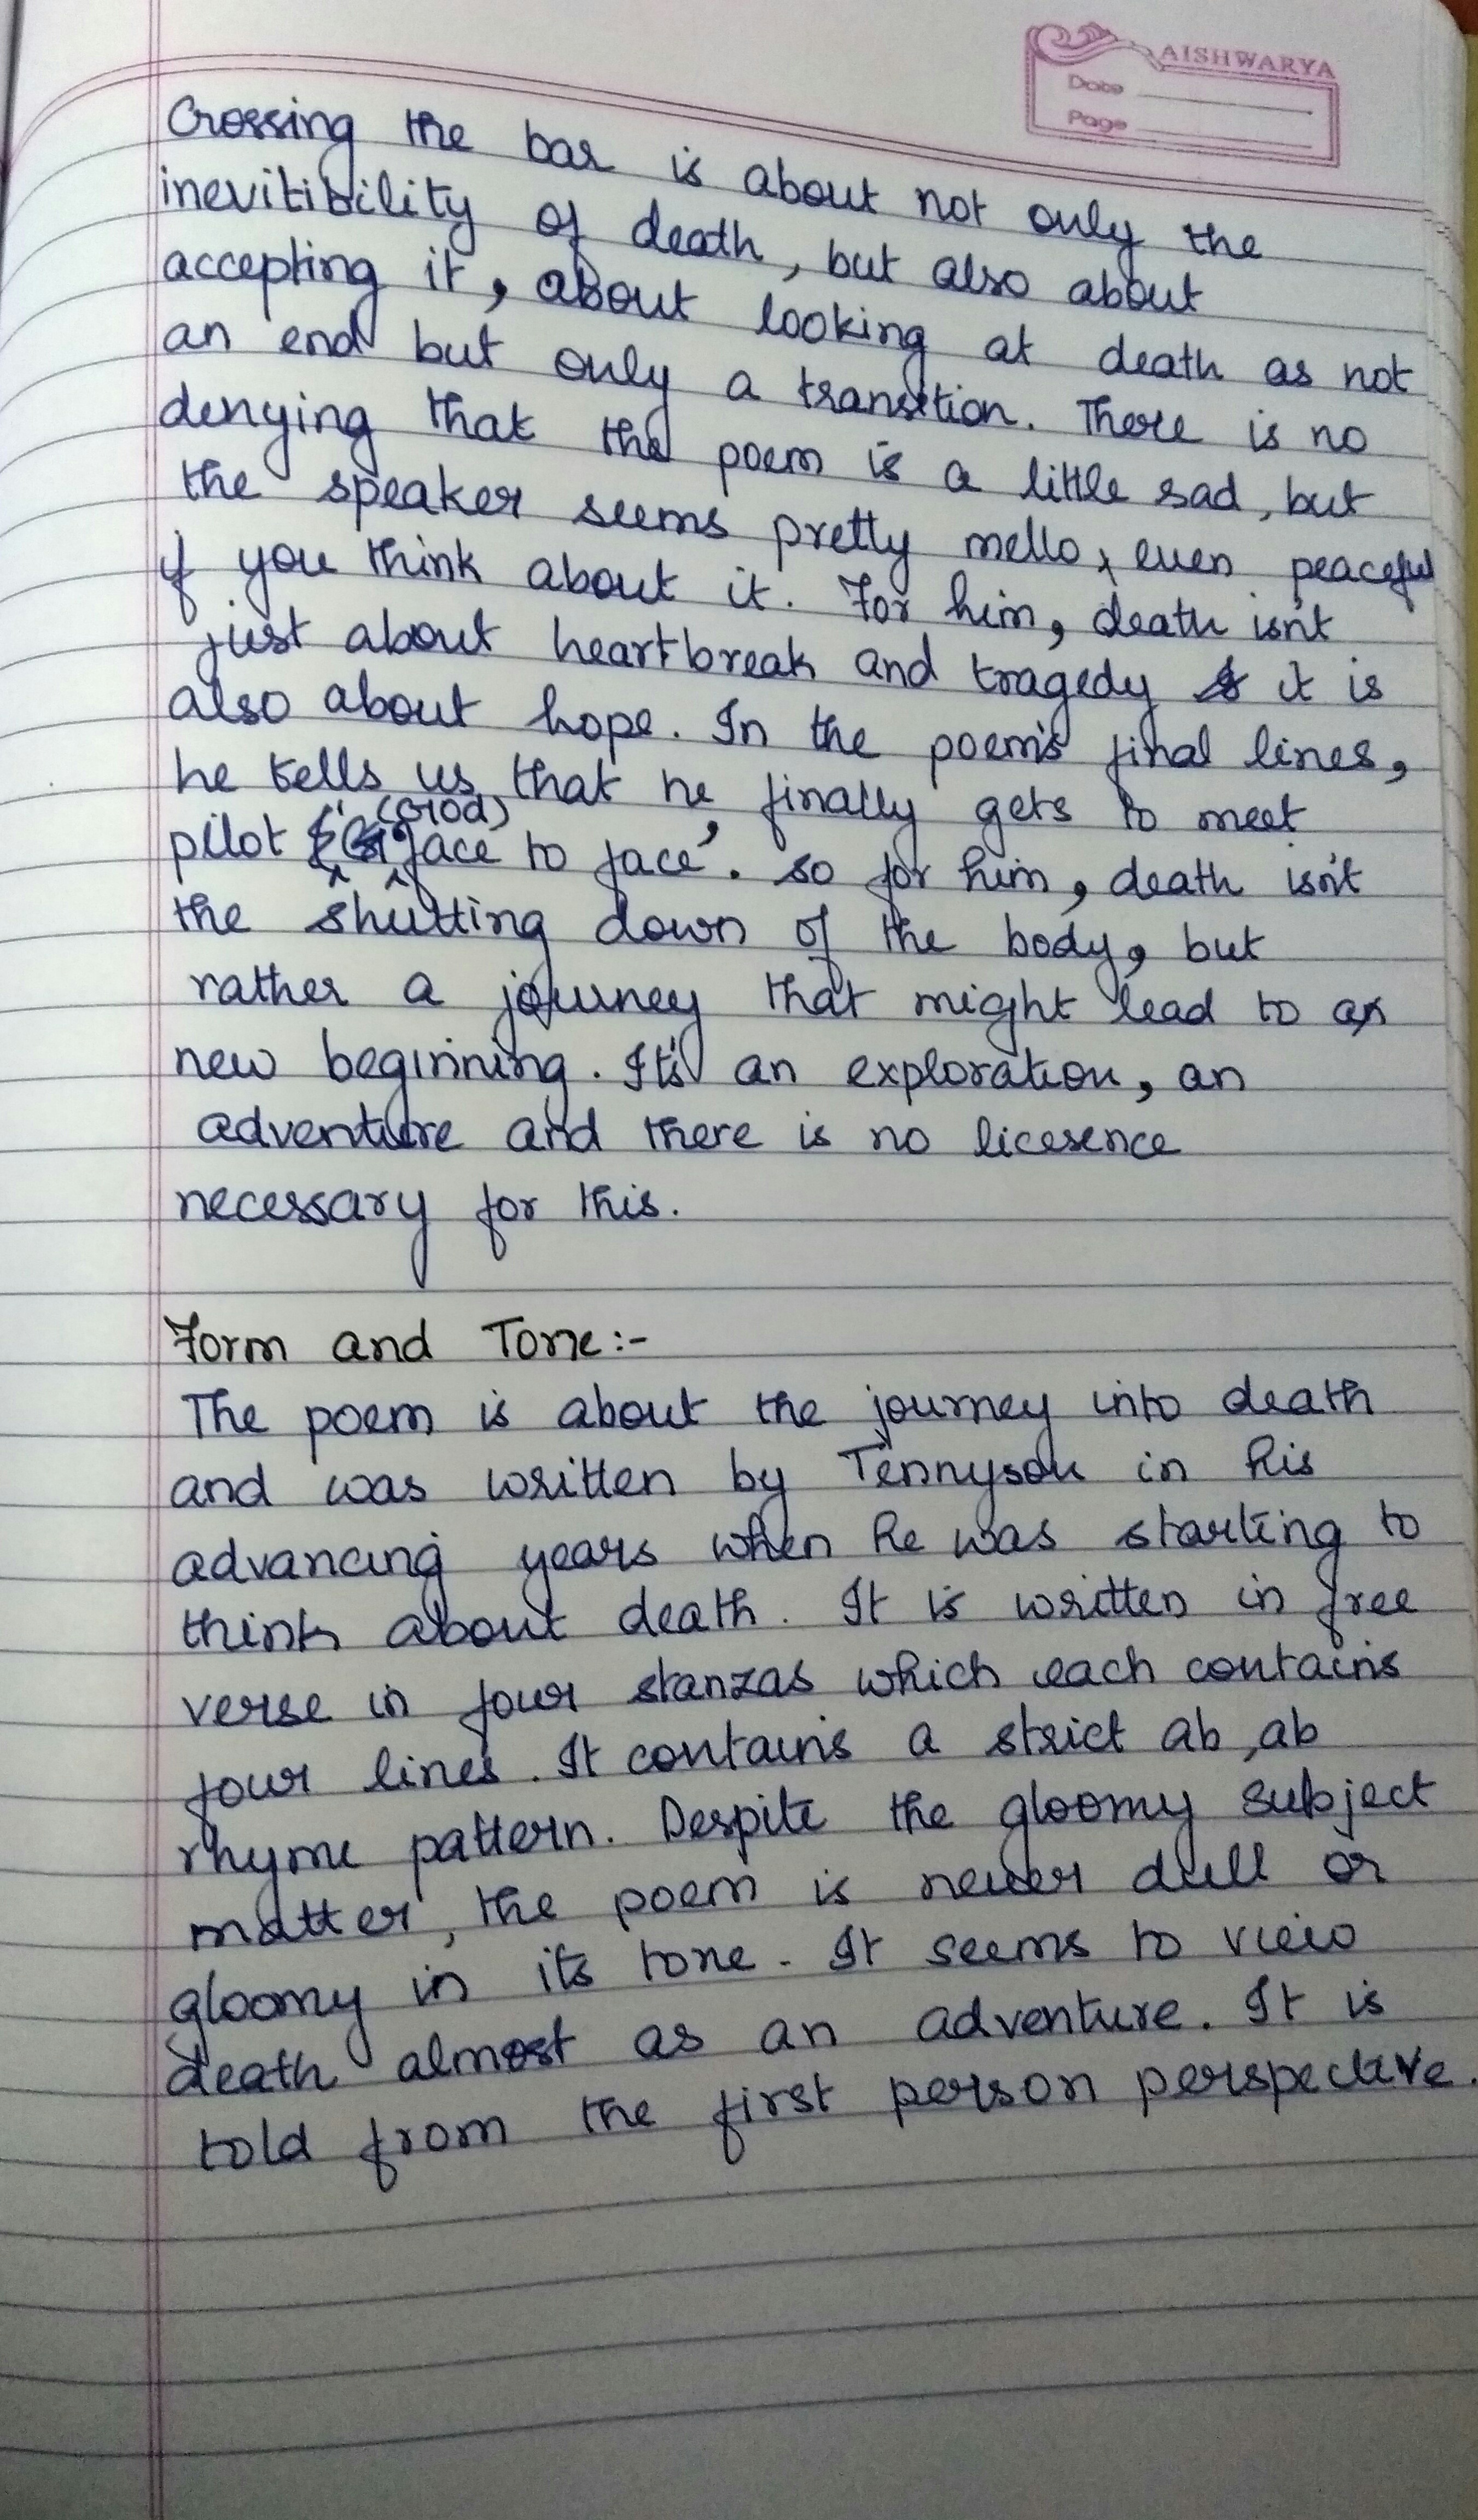 AISHWARYA
Date
Page
Crossing the bar is about not only the
inevitibility of death, but also about
accepting it, about looking at death as not
an end but only a transition. There is no
denying that the poem is a little sad, but
the speaker seems pretty mello, even peaceful
if you think about it. For him, death isn't
just about heartbreak and tragedy it is
also about hope. In the poem's final lines,
he tells us that he finally gets to meet
pilot (God) "face to face". so for him, death isn't
the shutting down of the body, but
rather a journey that might lead to a
new beginning. It's an exploration, an
adventure and there is no licesence
necessary for this.
Form and Tone:-
The poem is about the journey into death
and was written by Tennyson in his
advancing years when he was starting to
think about death. It is written in free
verse in four stanzas which each contains
four lines. It contains a strict ab, ab
rhyme pattern. Despite the gloomy subject
matter, the poem is never dull or
gloomy in its tone. It seems to view
death almost as an adventure. It is
told from the first person perspective.